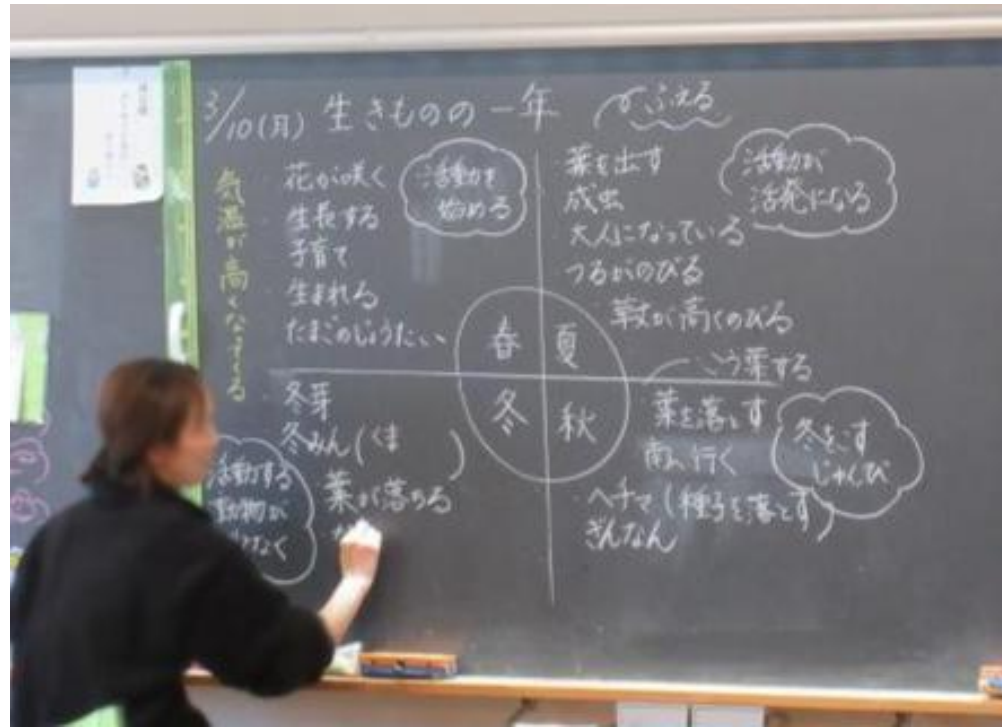 3/10(月) 生きものの一年
ふえる
気温が高くなる
花が咲く
生長する
子育て
生まれる
たまごのじょうたい
活動を
始める
葉を出す
成虫
大人になっている
つるがのびる
草丈が高くのびる
活動が
活発になる
春
夏
冬
秋
冬芽
冬みん(くま
)
葉が落ちる
活動する
動物が
なく
こう葉する
葉を落とす
南へ行く
・ヘチマ(種子を落とす)
ぎんなん
冬をこす
じゅんび